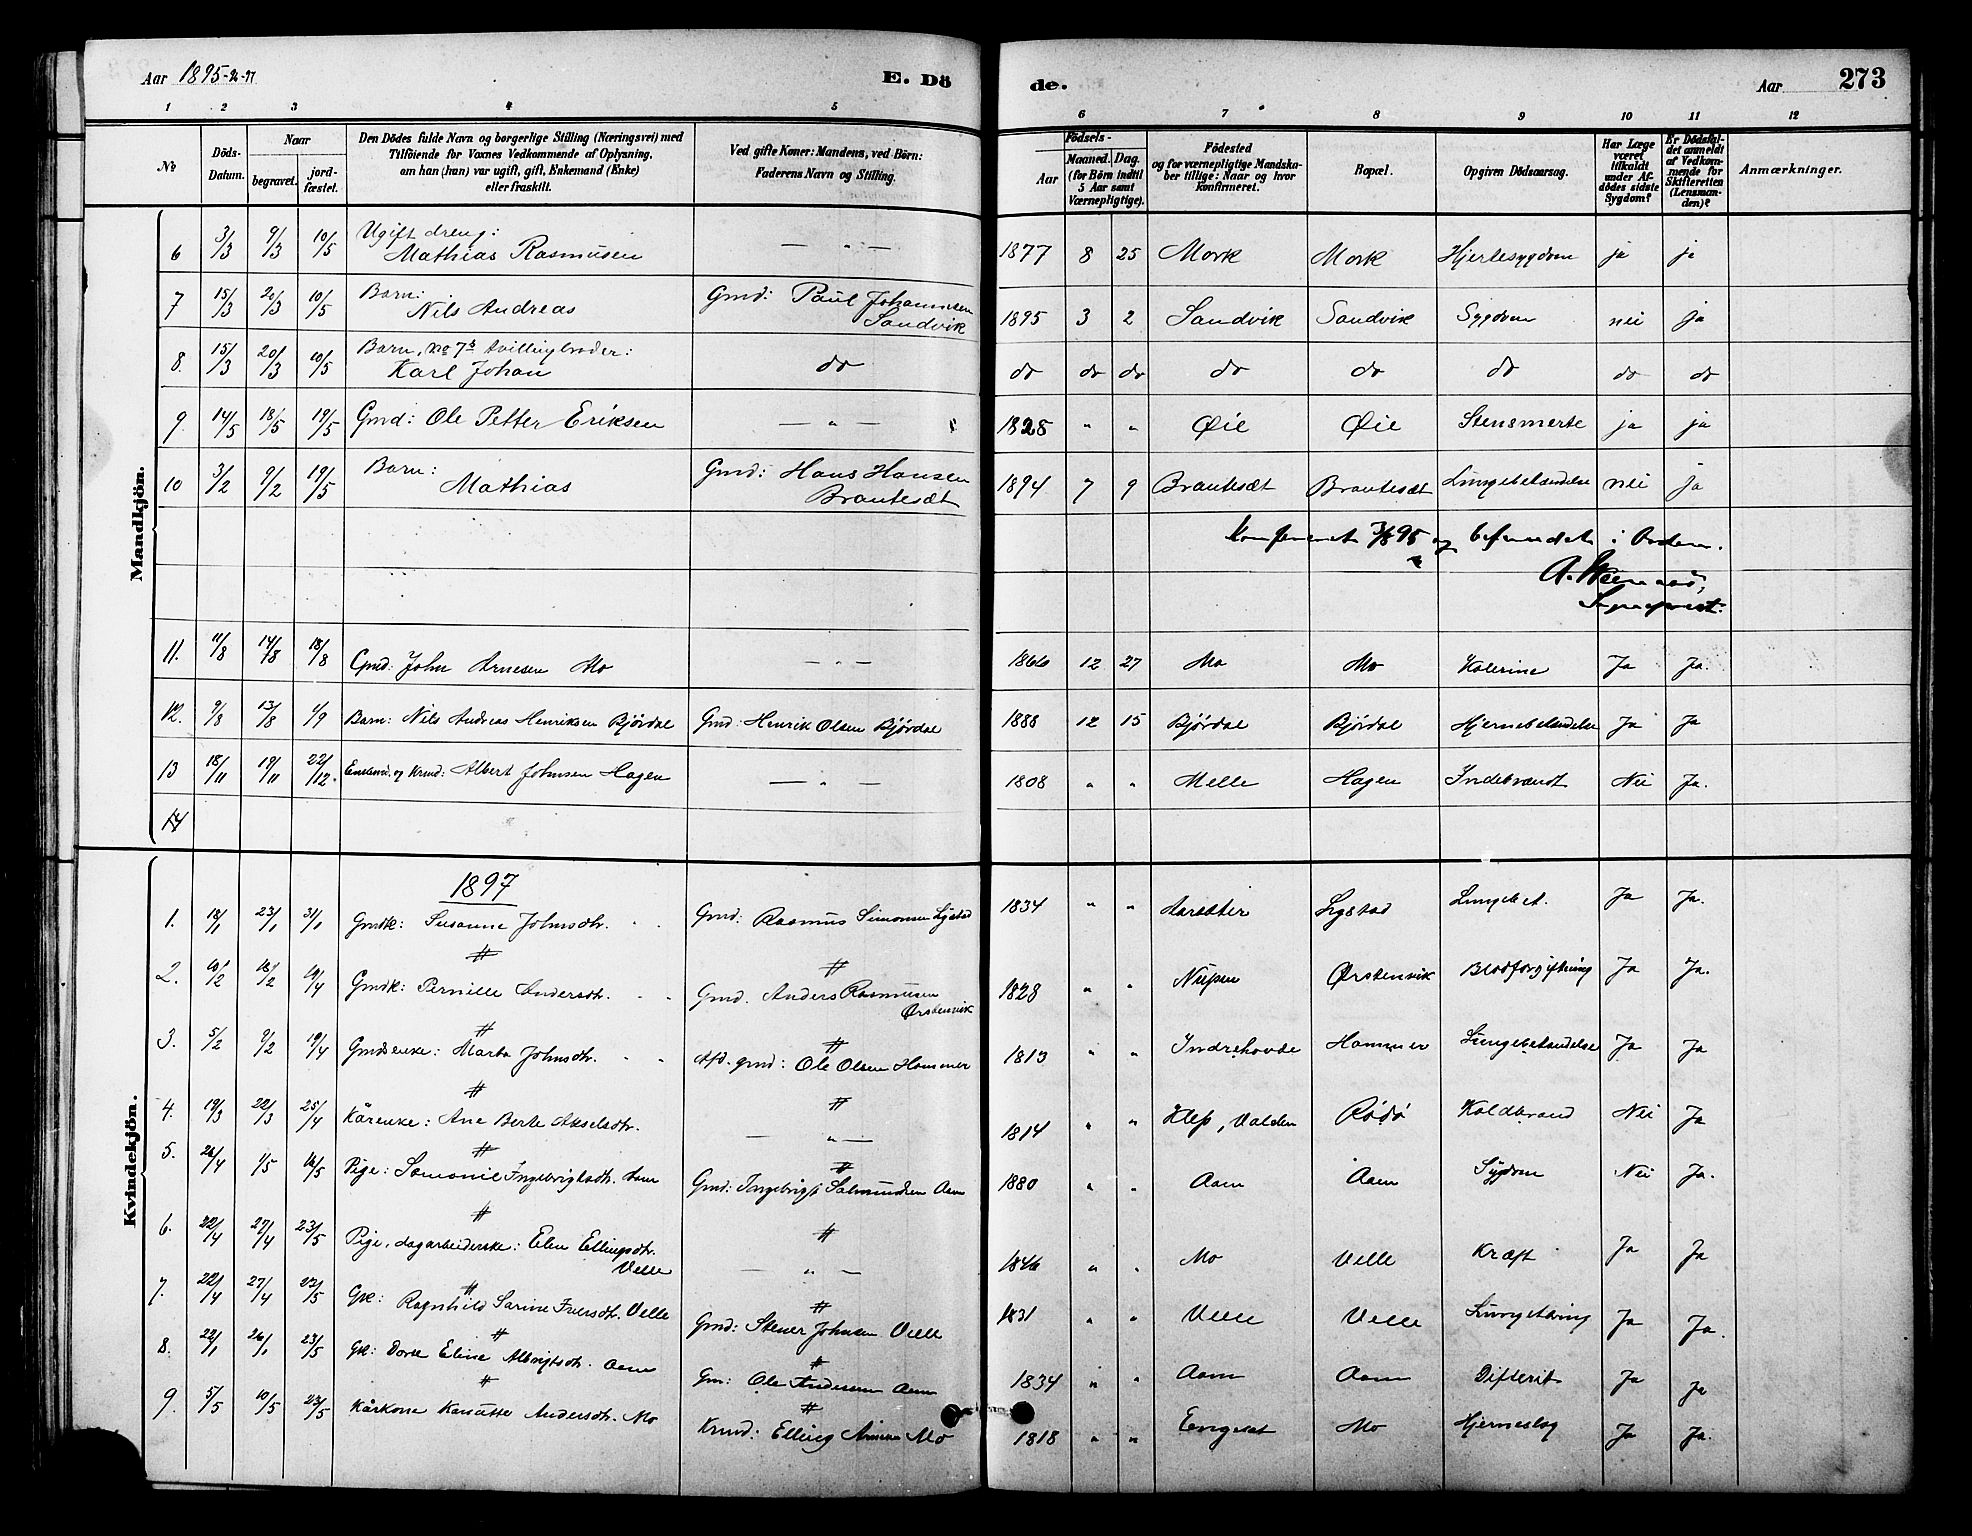 Aar 1895-96-97 E. Dö
de. Aar 273
1 2 3 4 5
6 7 8 9 10 11 12
No Döds-Datum. Naar begravet. jord-fæstet. Den Dödes fulde Navn og borgerlige Stilling (Næringsvei) med Tilföiende for Voxnes Vedkommende af Oplysning, om han (hun) var ugift, gift, Enkemand (Enke) eller fraskilt. Ved gifte Koner: Mandens, ved Börn: Faderens Navn og Stilling.
Födsels- Aar Maaned. Dag. (for Börn indtil 5 Aar samt Værnepligtige). Födested og for værnepligtige Mandska-ber tillige: Naar og hvor Konfirmeret. Bopæl. Opgiven Dödsaarsag. Har Læge været tilkaldt under Af-dödes sidste Sygdom? Er Dödsfal-det anmeldt af Vedkom-mende for Skifteretten (Lensman-den)? Anmærkninger.
Mandkjön.
6 3/3 9/3 10/5 Ugift dreng: Mathias Rasmusen — " — 1877 8 25 Mork Mork Hjertesygdom ja ja
7 15/3 20/3 10/5 Barn: Nils Andreas Gmd: Paul Johannsen Sandvik 1895 3 2 Sandvik Sandvik Sygdom nei ja
8. 15/3 20/3 10/5 Barn, No 7s tvillingbroder: Karl Johan do do do do do do do do do
9. 14/5 18/5 19/5 Gmd: Ole Petter Eriksen — " — 1828 " " Øie Øie Stensmerte ja ja
10 3/2 9/2 19/5 Barn: Mathias Gmd: Hans Hansen Brautesæt 1894 7 9 Brautesæt Brautesæt Lungebetændelse nei ja
Konfereret 7/8 95 og befundet i Orden.
11. 11/8 14/8 18/8 Gmd: John Arnesen Mo — " — 1866 12 27 Mo Mo Kolerine Ja Ja.
12. 9/8 13/8 1/9 Barn: Nils Andreas Henriksen Bjørdal Gmd: Henrik Olsen Bjørdal 1888 12 15 Bjørdal Bjørdal Hjernebetændelse Ja Ja
13 18/11 19/11 22/12. Enkemd. og Krmd: Albert Johnsen Hagen — " — 1808 " " Melle Hagen Indebrændt Nei Ja.
14
Kvindekjön.
1897
1. 18/1 23/1 31/1 Gmdk: Susanne Johnsdtr. Gmd: Rasmus Simonsen Lystad 1834 " " Aarsæter Lystad Lungebet. Ja Ja.
2. 10/2 18/2 19/4 Gmdk: Pernille Andersdtr. Gmd. Anders Rasmusen Ørstenvik 1828 " " Ørstenvik Blodforgiftning Ja Ja.
3. 5/2 9/2 19/4 Gmdsenke: Marta Johnsdtr. Afd. gmd: Ole Olsen Hammer 1813 " " Indrehovde Hammer Lungebetændelse Ja Ja
4. 19/3 22/3 25/4 Kårenke: Ane Berte Akselsdtr. — " — 1814 " " Klep, Valden Koldbrand Nei Ja
5. 26/4 1/5 16/5 Pige: Ingebrigtsdtr. Aam Gmd: Ingebrigt Salmundsen Aam 1880 " " Aam Aam Sygdom Nei Ja.
6. 22/4 27/4 23/5 Pige, dagarbeiderske: Elen Ellingsdtr. Velle — " — 1846 " " Mo Velle Kræft Ja Ja
7. 22/4 27/4 23/5 Gk: Ragnhild Sarine Iversdtr. Velle Gmd: Stener Johnsen Velle 1831 " " Velle Velle Lungetæring Ja Ja.
8. 22/1 26/1 23/5 Gk: Dorte Eline Albrigtsdtr. Aam Gm: Ole Andersen Aam 1834 " " Aam Aam Difterit Ja Ja
9. 5/5 10/5 23/5 Kårkone Andersdtr. Mo Krmd: Elling Mo 1818 " " Engeset Mo Hjerneslag Ja Ja.